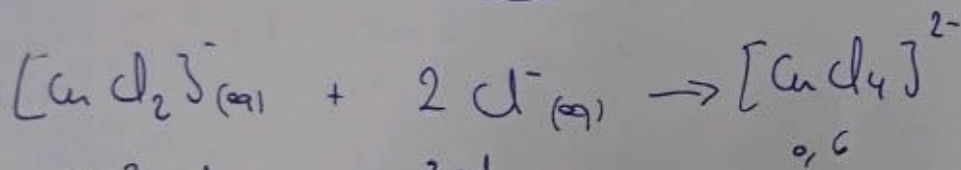 [Cu Cl₂]⁻(aq) + 2 Cl⁻(aq) → [Cu Cl₄]²⁻
0,6